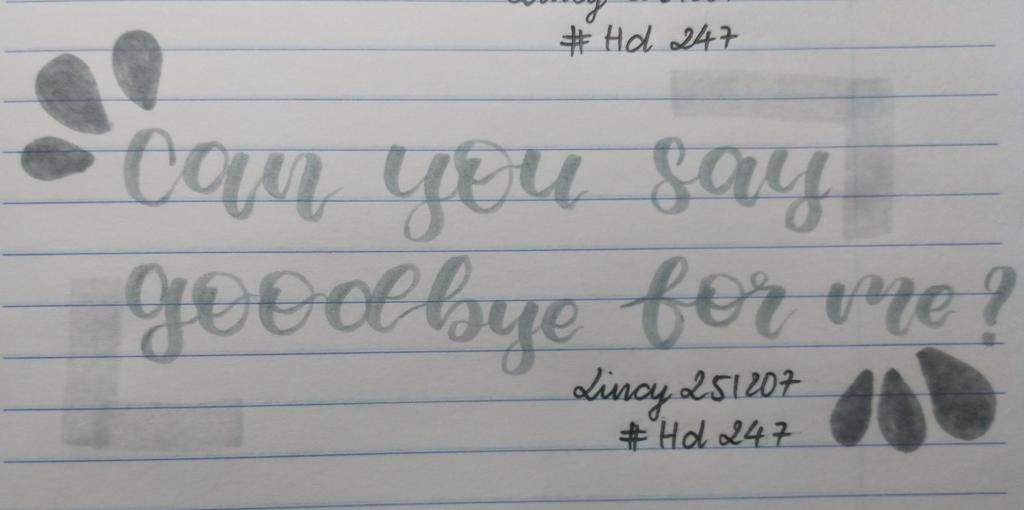 # Hd 247
can you say
goodbye for me?
Lincy 251207
# Hd 247